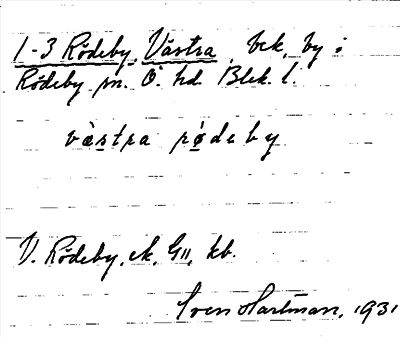 1-3 Rödeby, Västra, bek, by i
Rödeby sn. Ö. hd Blek. l.
västra rødeby
V. Rödeby, ek, G11, kb.
Sven Hartman, 1931